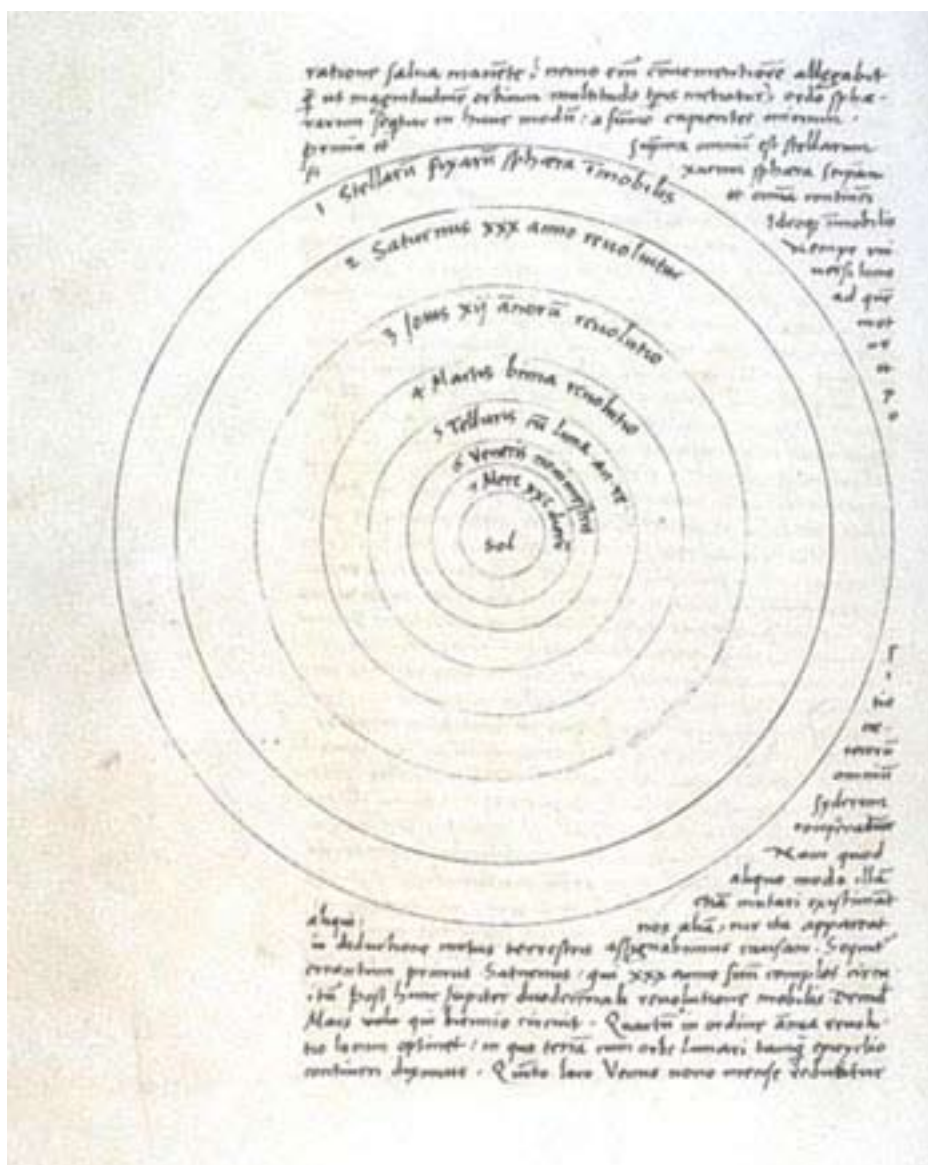 ratione salua manēte: nemo em̄ cōuenientiorē allegabit
q̄ ut magnitudinē orbium multitudo tp̄is metiatur, ordo sphæ-
rarum sequitur in hunc modū: a summo capientes initium.
prima et suprema omniū est stellarum
fi xarum sphæra seipsam
et omnia continēs
Ideoq; īmobilis
Nempe uni
uersi locus
ad quē
mot
1 Stellarū fixarū sphæra īmobilis
2 Saturnus xxx anno reuoluitur
3 Iouis xij ānorū reuolutio
4 Martis bima reuolutio
5 Telluris cū luna an. re.
6 Veneris nonimestris
7 Merc xxc dierū
Sol
tio
ce-
terorū
omniū
syderum
conferatur
Nam quod
aliquo modo illā
etiā mutari existimāt
aliqui: nos aliā, cur ita appareat
in deductione motus terrestris assignabimus causam. Sequit̄
errantium primus Saturnus: qui xxx anno suū complet circu
itū post hunc Jupiter duodecennali reuolutione mobilis Deinde
Mars qui biennio circuit. Quartū in ordine ānua reuolu
tio locum optinet: in quo terrā cum orbe lunari tanq̄ epicyclio
contineri diximus. Quinto loco Venus nono mense reducitur